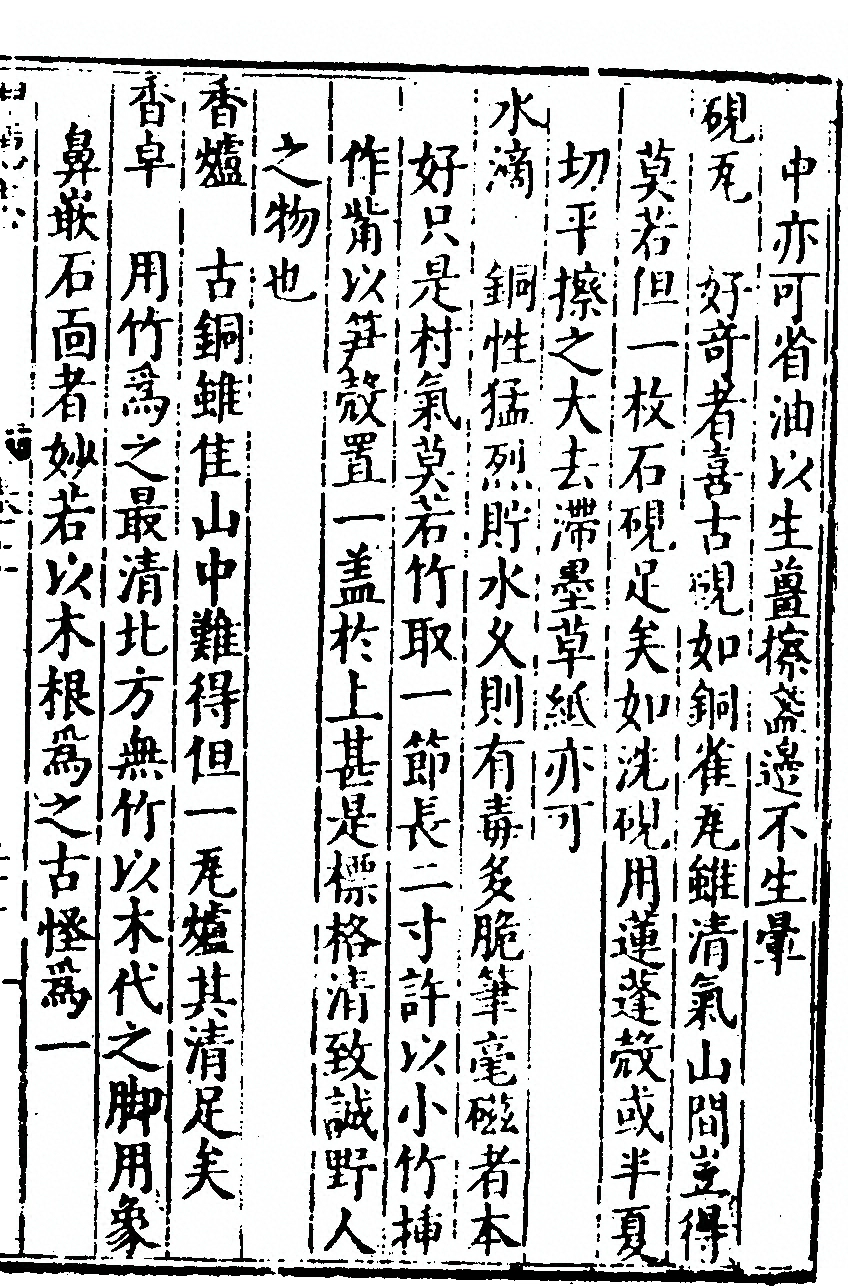 中亦可省油以生薑擦盞邊不生暈
硯瓦　好奇者喜古硯如銅雀瓦雖清氣山間豈得
莫若但一枚石硯足矣如洗硯用蓮蓬殼或半夏
切平擦之大去滯墨草紙亦可
水滴　銅性猛烈貯水久則有毒多脆筆毫磁者本
好只是村氣莫若竹取一節長二寸許以小竹揷
作觜以笋殼置一盖於上甚是標格清致誠野人
之物也
香爐　古銅雖佳山中難得但一瓦爐其清足矣
香卓　用竹爲之最清北方無竹以木代之脚用象
鼻嵌石面者妙若以木根爲之古怪爲一